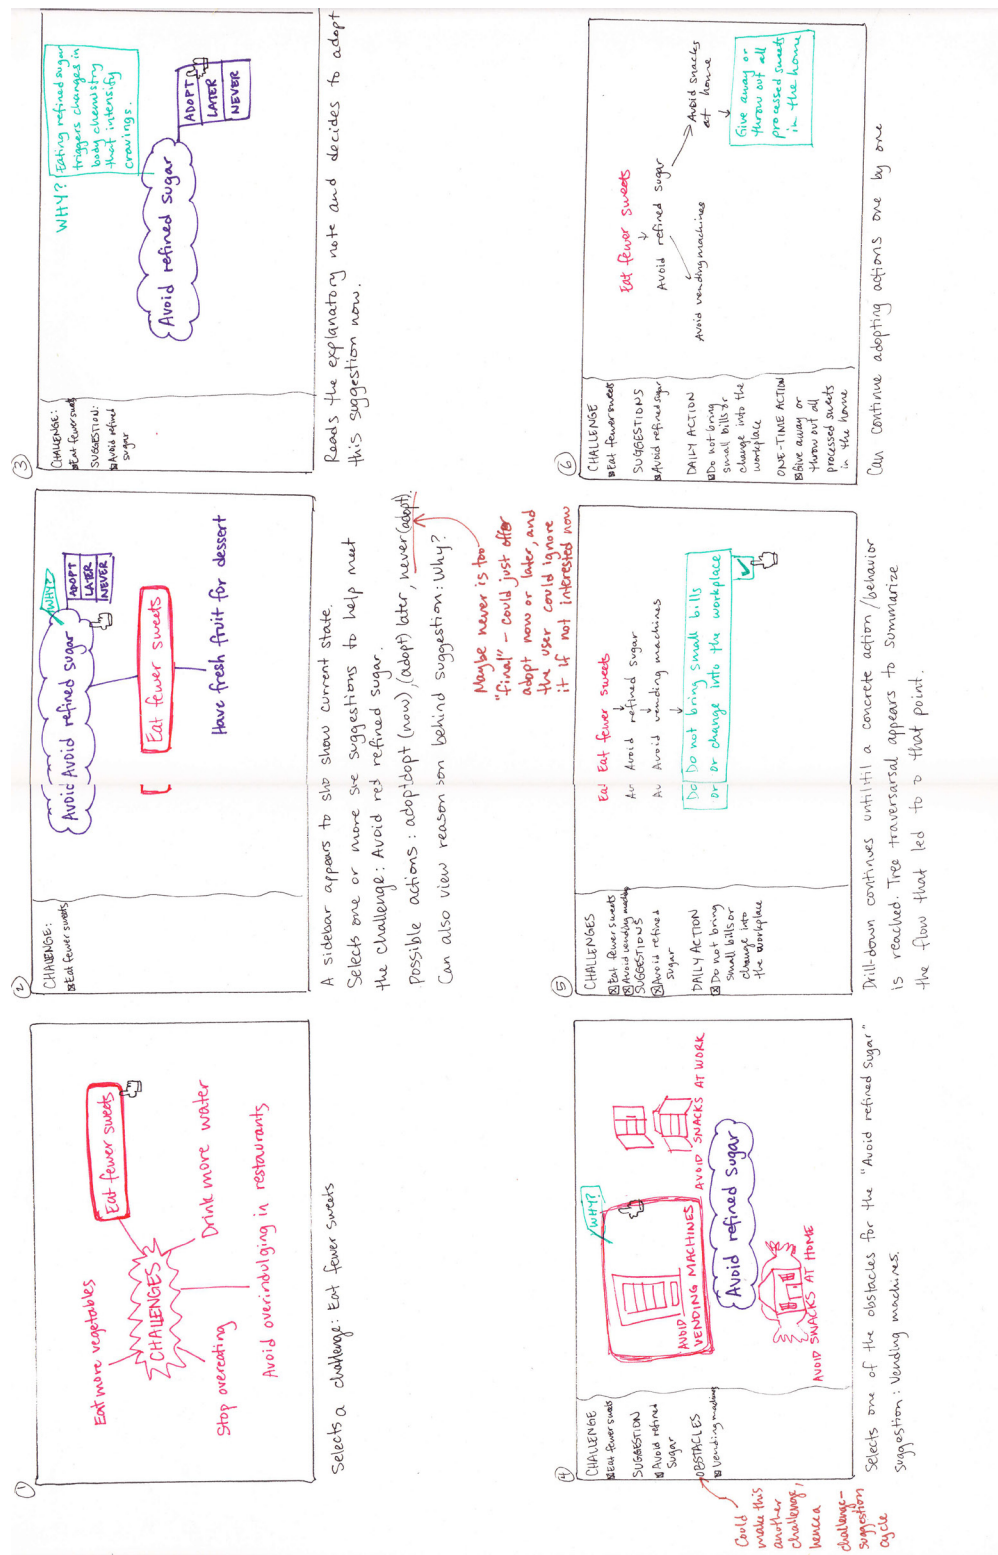 ①
CHALLENGES
Eat more vegetables
Eat fewer sweets
Drink more water
Stop overeating
Avoid overindulging in restaurants
Selects a challenge: Eat fewer sweets
②
CHALLENGE:
Eat fewer sweets
Avoid Avoid refined sugar
WHY?
ADOPT
LATER
NEVER
Eat fewer sweets
Have fresh fruit for dessert
A sidebar appears to sho show current state.
Selects one or more su suggestions to help meet
the challenge: Avoid ref refined sugar.
Possible actions: adopt adopt (now), (adopt) later, never (adopt).
Can also view reason son behind suggestion: Why?
Maybe never is too
"final" - could just offer
adopt now or later, and
the user could ignore
it if not interested now
③
CHALLENGE:
Eat fewer sweets
SUGGESTION:
Avoid refined
sugar
WHY?
Eating refined sugar
triggers changes in
body chemistry
that intensify
cravings.
Avoid refined sugar
ADOPT
LATER
NEVER
Reads the explanatory note and decides to adopt
this suggestion now.
④
CHALLENGE
Eat fewer sweets
SUGGESTION
Avoid refined
sugar
OBSTACLES
Vending machines
WHY?
AVOID
VENDING MACHINES
AVOID SNACKS AT WORK
Avoid refined sugar
AVOID SNACKS AT HOME
Selects one of the obstacles for the "Avoid refined sugar"
suggestion: Vending machines.
Could
make this
another
challenge,
hence a
challenge-
suggestion
cycle
⑤
CHALLENGES
Eat fewer sweets
Avoid vending machines
SUGGESTIONS
Avoid refined
sugar
DAILY ACTION
Do not bring
small bills or
change into
the workplace
Eat Eat fewer sweets
Av Avoid refined sugar
Av Avoid vending machines
Do Do not bring small bills
or or change into the workplace
Drill-down continues until til a concrete action/behavior
is reached. Tree traversarsal appears to summarize
the flow that led to o that point.
⑥
CHALLENGE
Eat fewer sweets
SUGGESTIONS
Avoid refined sugar
DAILY ACTION
Do not bring
small bills or
change into the
workplace
ONE-TIME ACTION
Give away or
throw out all
processed sweets
in the home
Eat fewer sweets
Avoid refined sugar
Avoid vending machines
Avoid snacks
at home
Give away or
throw out all
processed sweets
in the home
Can continue adopting actions one by one